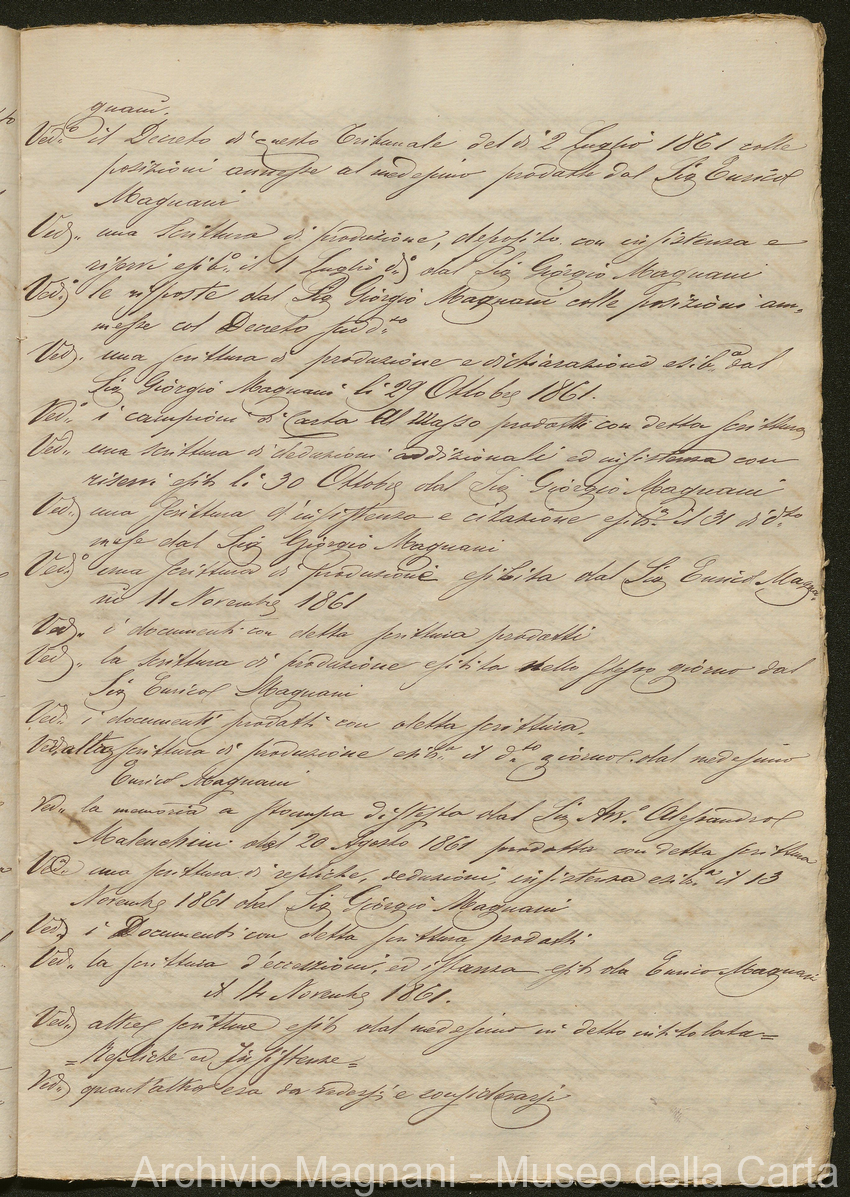 gnani.
Ved.º il Decreto di questo Tribunale del dì 2 Luglio 1861 colle
posizioni annesse al medesimo prodotti dal Sig Enrico
Magnani
Ved.. una Scrittura di produzione, deposito con insistenza e
riservi esib.ª il 1 Luglio d.º dal Sig Giorgio Magnani
Ved.. le risposte dal Sig Giorgio Magnani colle posizioni am-
messe col Decreto sud.to
Ved.. una scrittura di produzione e dichiarazione esib.ª dal
Sig Giorgio Magnani li 29 Ottobre 1861.
Ved.i i campioni di Carta Al Masso prodotti con detta scrittura
Ved.. una scrittura di deduzioni addizionali ed insistenza con
riservi esib li 30 Ottobre dal Sig Giorgio Magnani
Ved.. una scrittura d'insistenza e citazione esib.ª il 31 di d.to
mese dal Sig Giorgio Magnani
Ved.. una scrittura di produzione esibita dal Sig Enrico Magna-
ni 11 Novembre 1861
Ved.. i documenti con detta scrittura prodotti
Ved.. la scrittura di produzione esibita nello stesso giorno dal
Sig Enrico Magnani
Ved.. i documenti prodotti con detta scrittura.
Ved. altra scrittura di produzione esib.ª il d.to giorno dal medesimo
Enrico Magnani
Ved.. la memoria a stampa distesa dal Sig Avv.º Alessandro
Malenchini del 20 Agosto 1861 prodotta con detta scrittura
Ved.. una scrittura di repliche, deduzioni, insistenza esib.ª il 13
Novembre 1861 dal Sig Giorgio Magnani
Ved.. i Documenti con detta scrittura prodotti
Ved.. la scrittura d'eccezzioni, ed istanza esib da Enrico Magnani
il 14 Novembre 1861.
Ved.. altre scritture esib dal medesimo in detto intitolata=
=Repliche ed Insistenze=
Ved.. quant'altro era da vedersi e considerarsi
Archivio Magnani - Museo della Carta